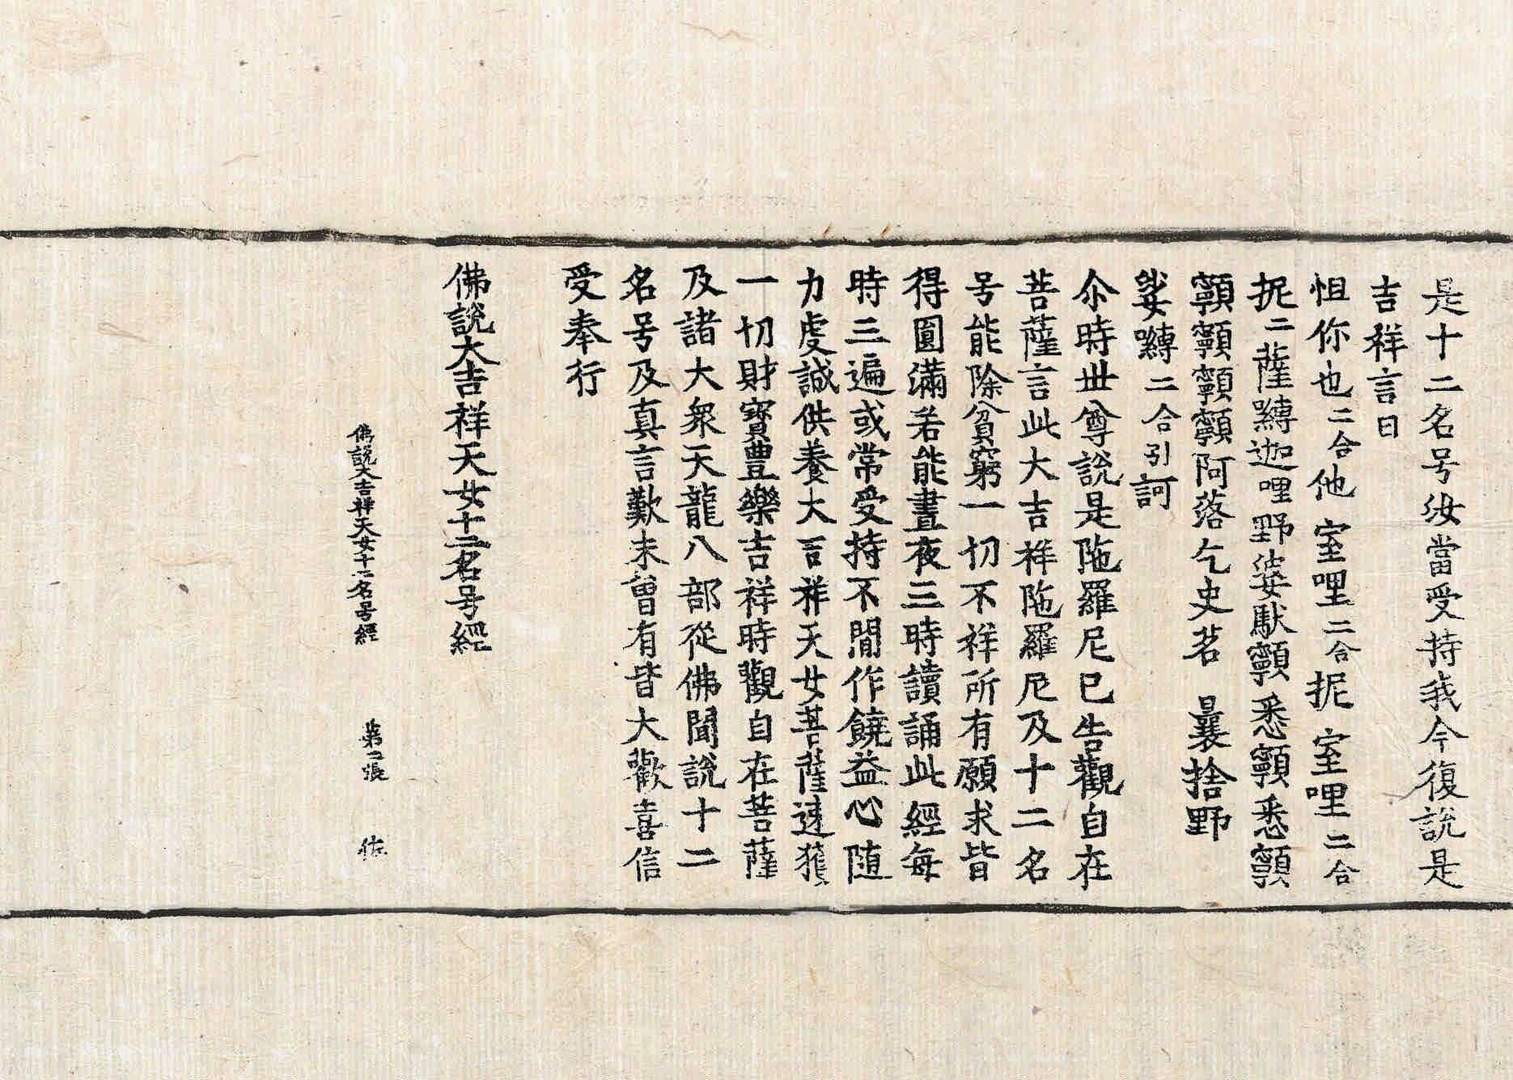 是十二名号汝當受持我今復說是
吉祥言日
怛你也二合他 室哩二合抳 室哩二合
抳二薩縛迦哩野婆馱顙悉顙悉顙
顙顙顙顙阿落乞史茗 曩捨野
娑嚩二合引訶
尒時世尊說是陁羅尼已告觀自在
菩薩言此大吉祥陁羅尼及十二名
号能除貧窮一切不祥所有願求皆
得圓滿若能晝夜三時讀誦此經每
時三遍或常受持不間作饒益心随
力虔誠供養大吉祥天女菩薩速獲
一切財寶豊樂吉祥時觀自在菩薩
及諸大衆天龍八部從佛聞說十二
名号及真言歎未曾有皆大歡喜信
受奉行
佛說大吉祥天女十二名号經
佛說大吉祥天女十二名号經 第二張 佐